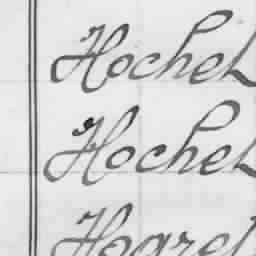 Hochel
Hochel
Hogrel